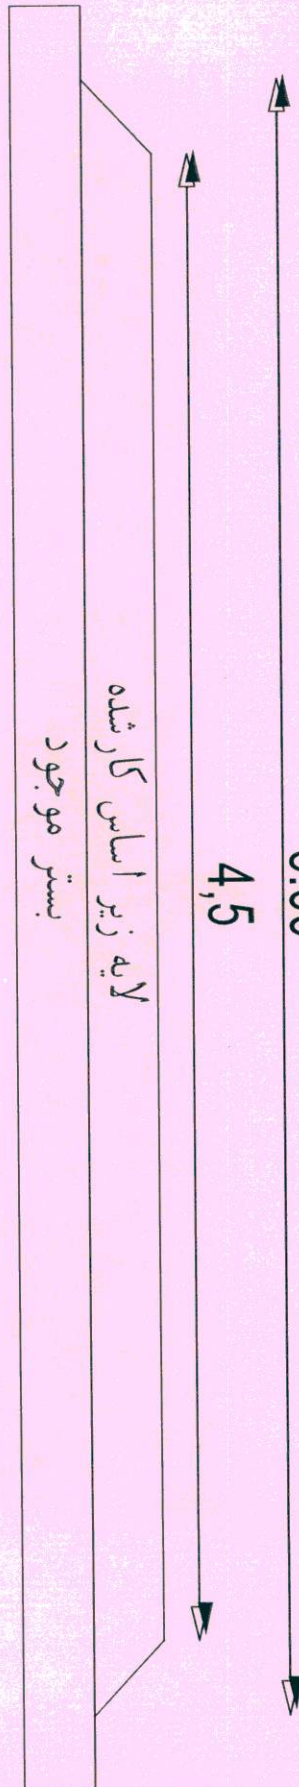 4,5
لایه زیر اساس کارشده
بستر موجود